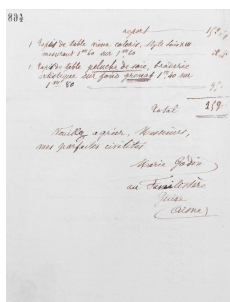 894
report
1 Tapis de table vieux coloris, style Louis XIII
mesurant 1m60 sur 1m60
1 Tapis de table peluche de soie, broderie
artistique sur fond grenat 1m40 sur
1m80
Total 159
Veuillez agréer, Messieurs,
mes parfaites civilités
Marie Godin
au Familistère
Guise
(Aisne)